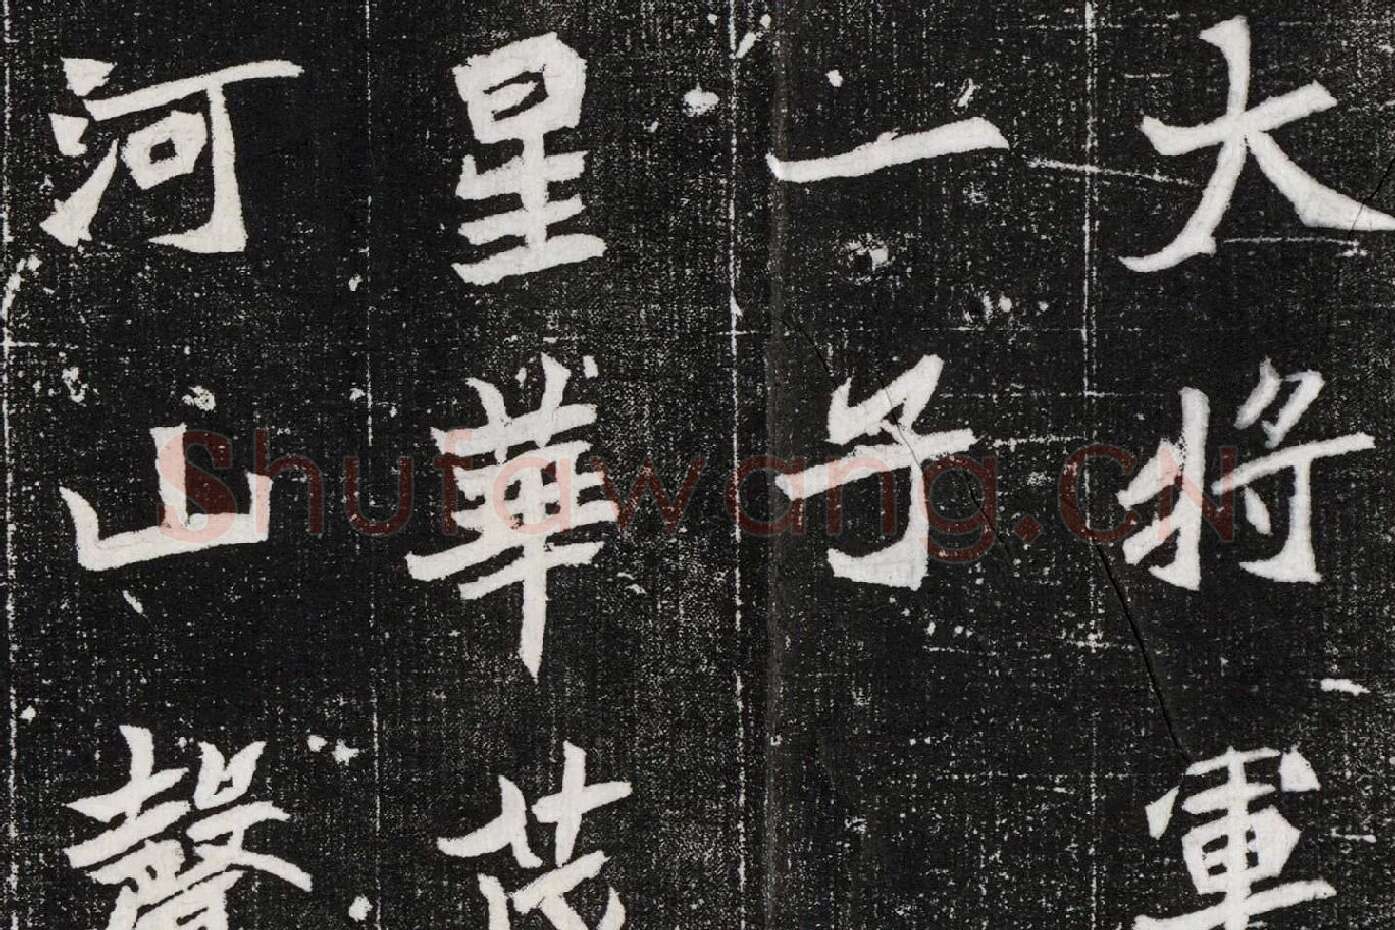 大將軍
一子
星華茂
河山聲
Shufawang.CN